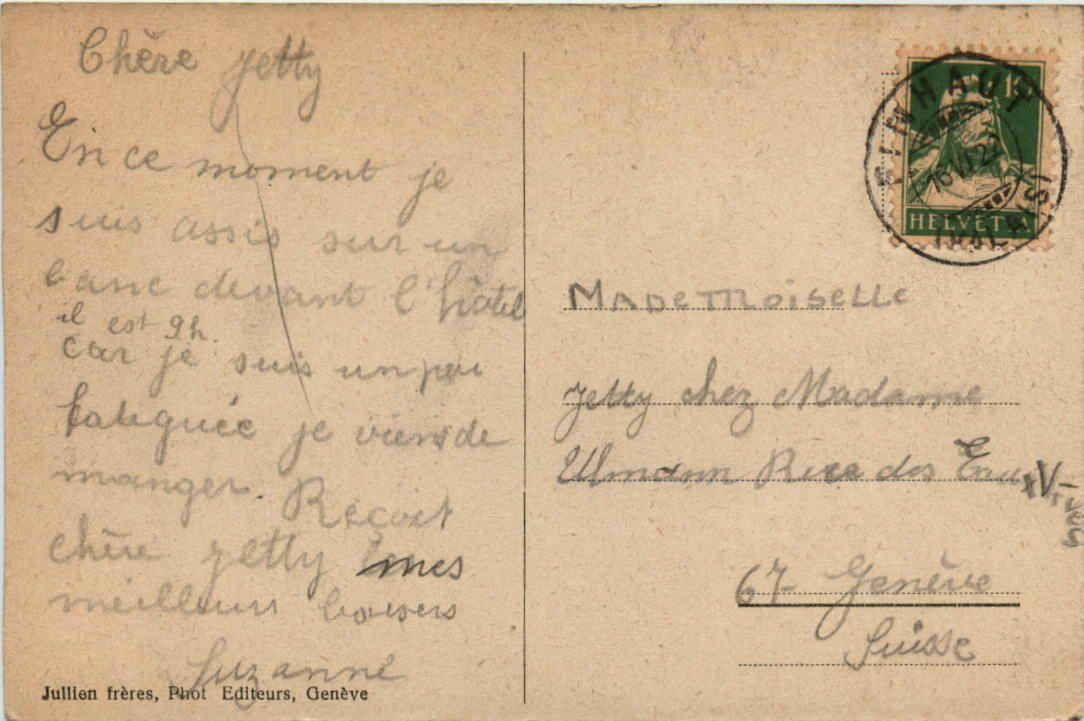 Chère Jetty
En ce moment je
suis assis sur un
banc devant l'hôtel
il est 9h.
car je suis un peu
fatiguée je viens de
manger. Reçoit
chère Jetty mes
meilleurs baisers
Suzanne
Jullien frères, Phot Editeurs, Genève
FINHAUT
16.VII.22
HELVETIA
MADEMOISELLE
Jetty chez Madame
Ulmann Rue des Eaux V-
67 Genève
Suisse